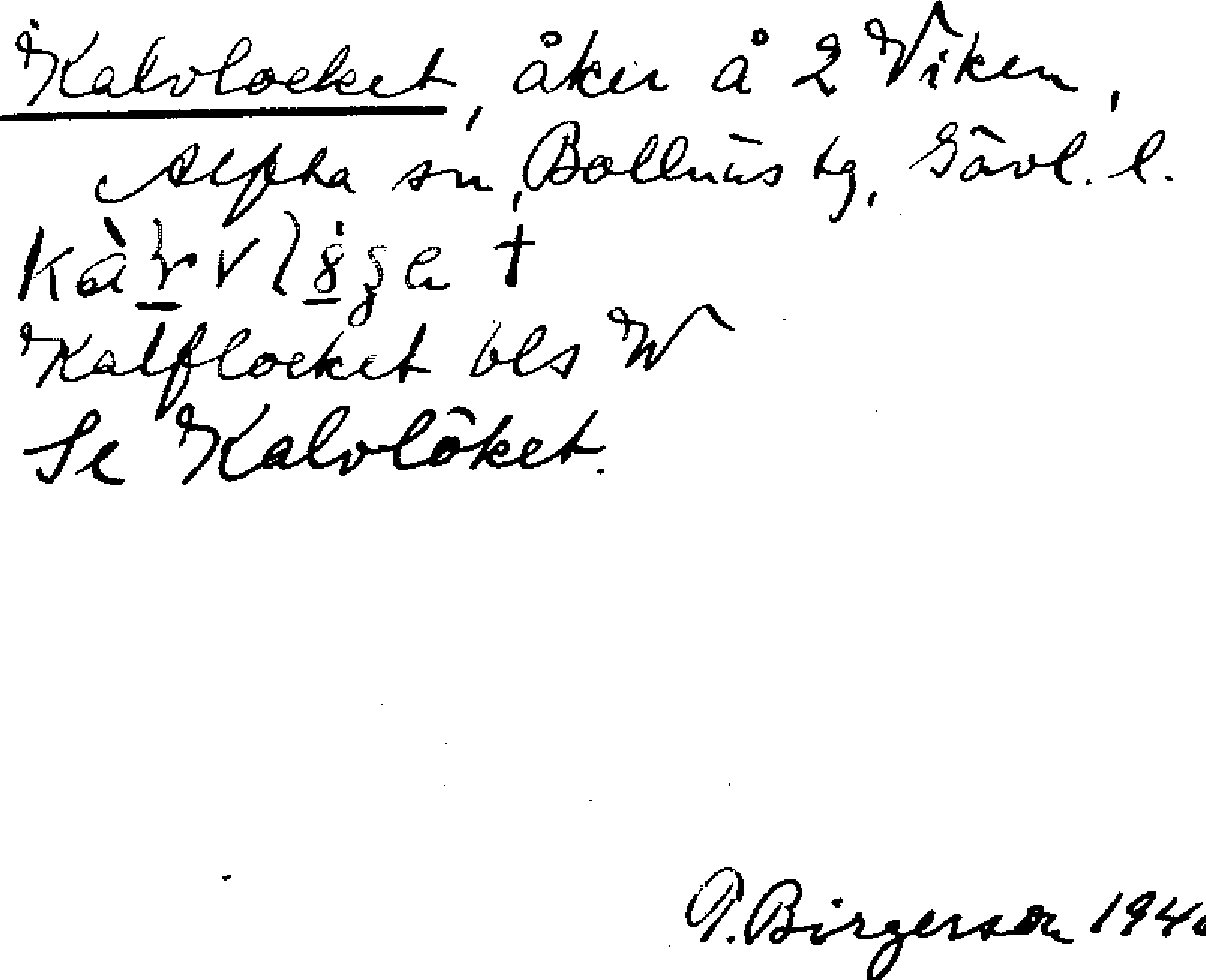 Kalvlocket, åker å 2 Viken,
Alfta sn, Bollnäs tg, Gävl. l.
Kalflocket bls W
Se Kalvlöket.
P. Birgerson